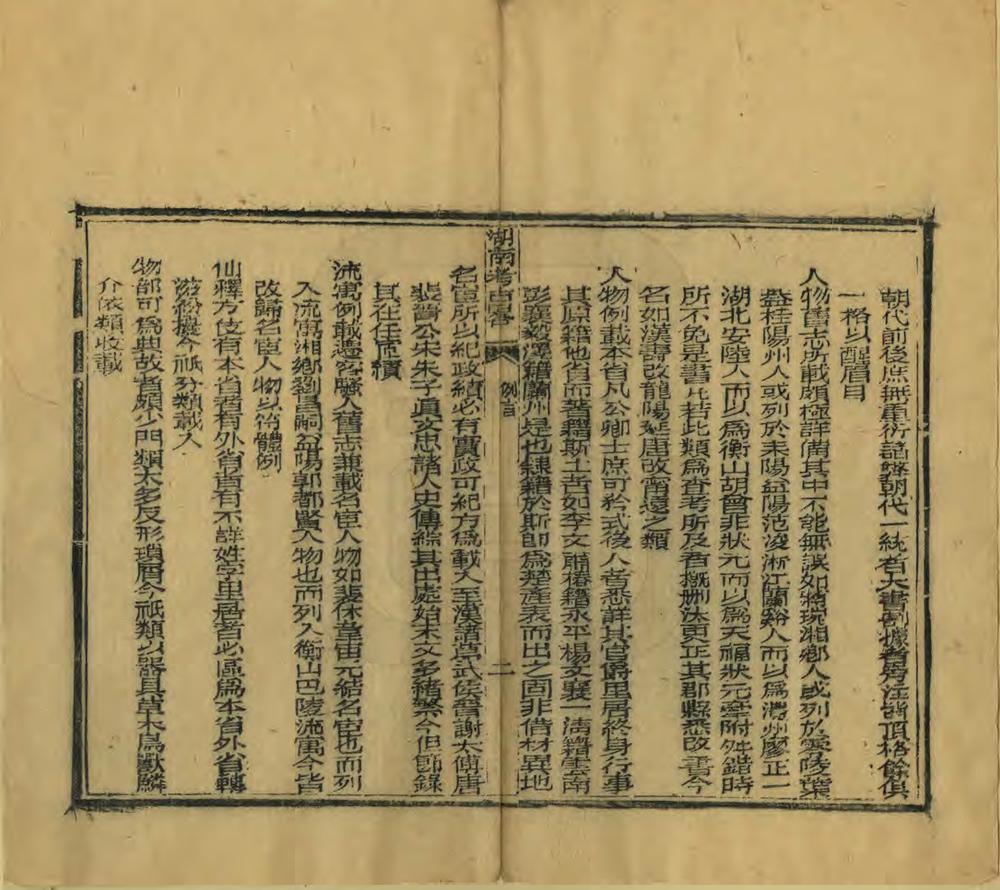 朝代前後庶無重衍諸弊朝代一統者大書割據者旁注皆頂格餘俱
一格以醒眉目
人物舊志所載頗極詳備其中不能無誤如蔣琬湘鄉人或列於零陵葉
桂陽州人或列於耒陽益陽范浚浙江蘭谿人而以爲澧州廖正一
湖北安陸人而以爲衡山胡曾非狀元而以爲天福狀元牽附舛錯時
所不免是書凡若此類爲查考所及者概删汰更正其郡縣悉改書今
名如漢壽改龍陽延唐改甯遠之類
人物例載本省凡公卿士庶可矜式後人者悉詳其官爵里居終身行事
其原籍他省而著籍斯土者如李文籍永平楊文襄一清籍雲南
彭襄毅澤籍蘭州是也隸籍於斯卽爲楚產表而出之固非借材異地
湖南考古畧
例言
二
名宦所以紀政績必有實政可紀方爲載入至漢諸葛武侯晉謝太傅唐
裴晉公宋朱子眞文忠諸人史傳綜其出處始末文多繁今但節錄
其在任政績
流寓例載遷客騷人舊志兼載名宦人物如裴休韋宙元結名宦也而列
入流寓湘鄉劉昌嗣益陽郭都賢人物也而列入衡山巴陵流寓今皆
改歸名宦人物以符體例
仙釋方伎有本省者有外省者有不詳姓字里居者必區爲本省外省轉
滋紛擾今祇分類載入
物部可爲典故者頗少門類太多反形瑣屑今祇類以器具草木鳥獸鱗
介依類收載